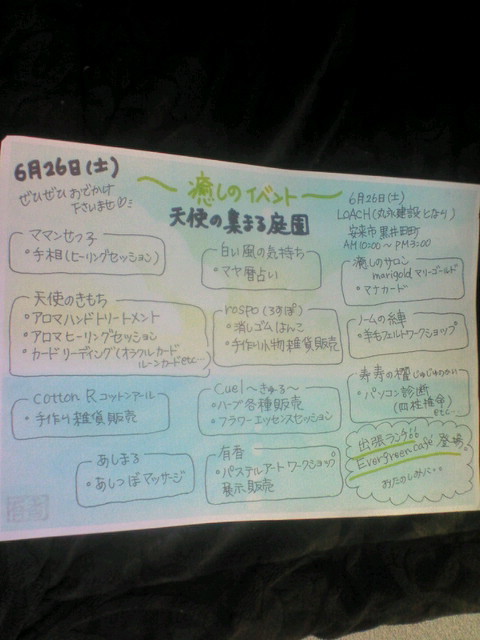 6月26日(土)
ぜひぜひおでかけ
下さいませ
～癒しのイベント～
天使の集まる庭園
6月26日(土)
LOACH(丸永建設となり)
安来市黒井田町
AM10:00～PM3:00
ママンせっ子
・手相(ヒーリングセッション)
白い風の気持ち
・マヤ暦占い
癒しのサロン
marigold マリーゴールド
・マナカード
天使のきもち
・アロマハンドトリートメント
・アロマヒーリングセッション
・カードリーディング(オラクルカード
ルーンカードetc…
rospo(ろすぽ)
・消しゴムはんこ
・手作り小物雑貨販売
ノームの絆
・羊毛フェルトワークショップ
cotton R コットンアール
・手作り雑貨販売
Cuel～きゅる～
・ハーブ各種販売
・フラワーエッセンスセッション
寿寿の櫂 じゅじゅのかい
・パソコン診断
(四柱推命)
etc…
あしまる
・あしつぼマッサージ
有香
・パステルアートワークショップ
展示販売
出張ランチ
Evergreen café 登場
おたのしみに…